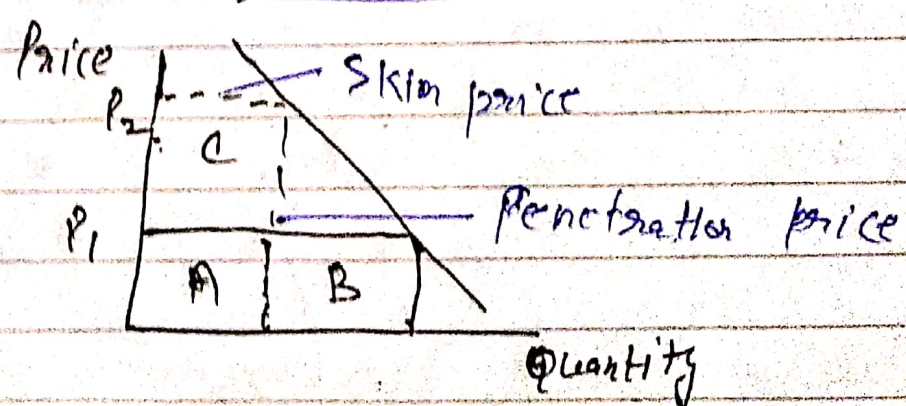 Price
Skim price
P2
C
P1
Penetration price
A
B
Quantity